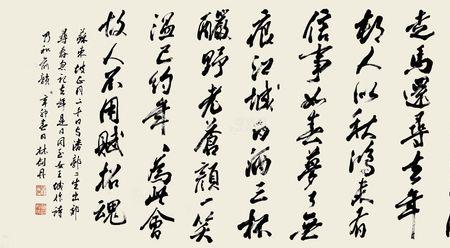 走馬還尋去年
邨人似秋鴻來有
信事如春夢了無
痕江城白酒三杯
釅野老蒼顏一笑
溫已約年年為此會
故人不用賦招魂
蘇東坡正月二十日與潘郭二生出郊
尋春忽記去年是日同至女王城作詩
乃和前韻 辛卯春日林劍丹